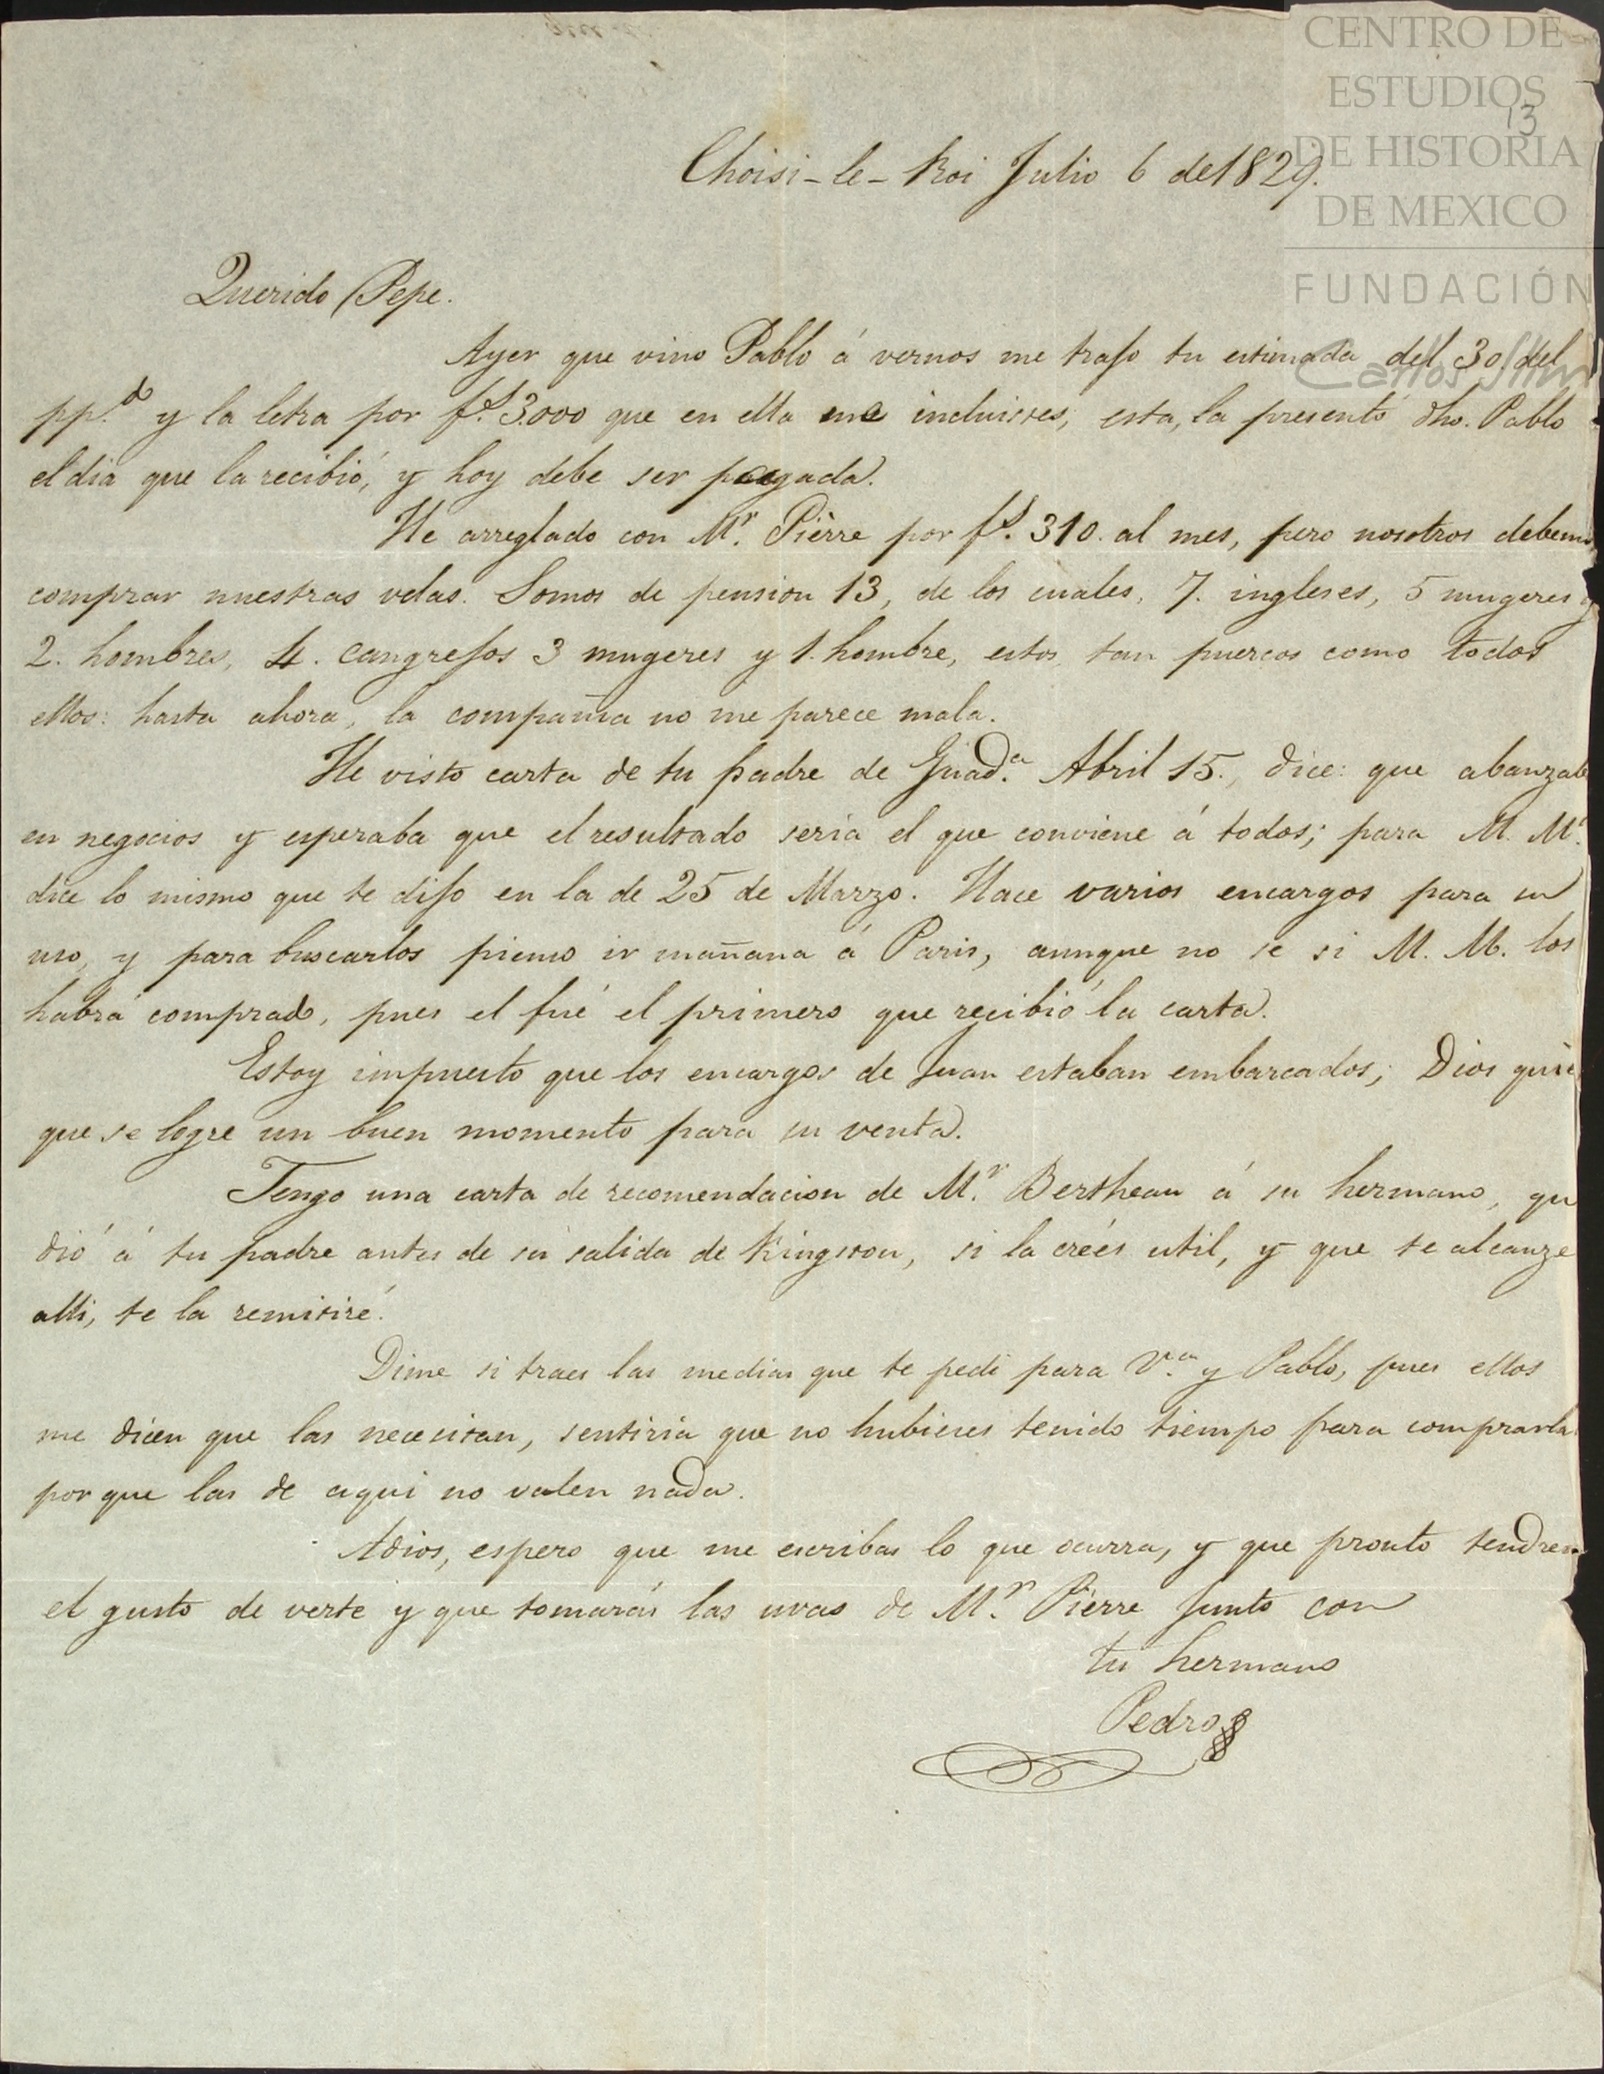 CENTRO DE
ESTUDIOS
13
DE HISTORIA
DE MEXICO
FUNDACIÓN
Carlos Slim
Choisi-le-Roi Julio 6 de 1829.
Querido Pepe.
Ayer que vino Pablo á vernos me trajo tu estimada del 30 del
pp.do y la letra por fs. 3.000 que en ella me incluistes; esta, la presentó dho. Pablo
el dia que la recibió, y hoy debe ser pagada.
He arreglado con Mr. Pierre por fs. 310. al mes, pero nosotros debemos
comprar nuestras velas. Somos de pension 13, de los cuales, 7. ingleses, 5 mugeres y
2. hombres, 4. cangrejos 3 mugeres y 1. hombre, estos tan puercos como todos
ellos: hasta ahora, la compañia no me parece mala.
He visto carta de tu padre de Guad.a Abril 15., dice: que abanzaba
en negocios y esperaba que el resultado seria el que conviene á todos; para M. M.
dice lo mismo que te dijo en la de 25 de Marzo. Hace varios encargos para su
uso, y para buscarlos pienso ir mañana á Paris, aunque no se si M. M. los
habrá comprado, pues el fué el primero que recibió la carta.
Estoy impuesto que los encargos de Juan estaban embarcados; Dios quie
que se logre un buen momento para su venta.
Tengo una carta de recomendacion de Mr. Bertheau á su hermano, qu
dió á tu padre antes de su salida de Kingston, si la creés util, y que te alcanze
alli, te la remitiré.
Dime si traes las medias que te pedi para V.a y Pablo, pues ellos
me dicen que las necesitan, sentiria que no hubieses tenido tiempo para comprarla
por que las de aqui no valen nada.
Adios, espero que me escribas lo que ocurra, y que pronto tendrem
el gusto de verte y que tomarás las uvas de Mr. Pierre junto con
tu hermano
Pedro